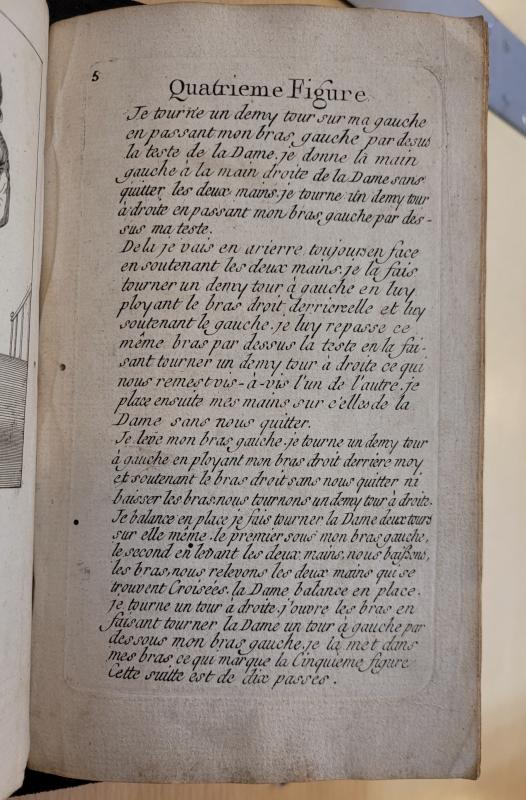 5
Quatrieme Figure
Je tourne un demy tour sur ma gauche
en passant mon bras gauche par desus
la teste de la Dame. je donne la main
gauche à la main droite de la Dame sans
quitter les deux mains. je tourne un demy tour
à droite en passant mon bras gauche par des-
sus ma teste.
De la je vais en arierre toujours en face
en soutenant les deux mains. je la fais
tourner un demy tour à gauche en luy
ployant le bras droit derriere elle et luy
soutenant le gauche. je luy repasse ce
même bras par dessus la teste en la fai-
sant tourner un demy tour à droite ce qui
nous remest vis-à-vis l'un de l'autre. je
place ensuite mes mains sur c'elles de la
Dame sans nous quitter.
Je leve mon bras gauche. je tourne un demy tour
à gauche en ployant mon bras droit derriere moy
et soutenant le bras droit sans nous quitter ni
baisser les bras nous tournons un demy tour à droite.
Je balance en place je fais tourner la Dame deux tours
sur elle même. le premier sous mon bras gauche,
le second en levant les deux mains, nous baissons,
les bras, nous relevons les deux mains qui se
trouvent Croisées. la Dame balance en place.
je tourne un tour à droite. j'ouvre les bras en
faisant tourner la Dame un tour à gauche par
dessous mon bras gauche. je la met dans
mes bras ce qui marque la Cinquieme figure
Cette suitte est de dix passes.